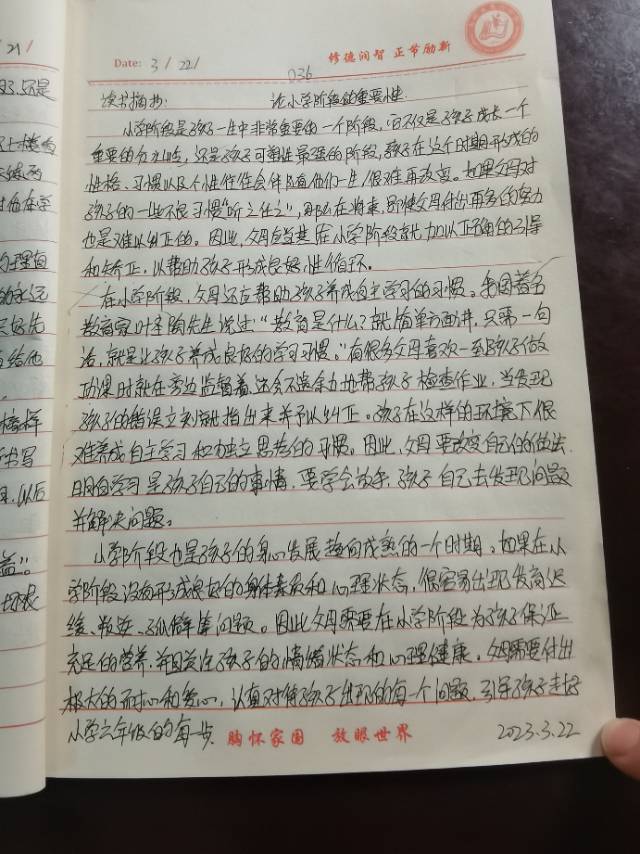 21/
Date: 3/22/
修德润智 正节励新
036
读书摘抄: 论小学阶段的重要性.
小学阶段是孩子一生中非常重要的一个阶段,它不仅是孩子成长一个
重要的分水岭,还是孩子可塑性最强的阶段,孩子在这个时期形成的
性格、习惯以及个性往往会伴随他们一生/很难再改变。如果父母对
孩子的一些不良习惯“听之任之”,那么在将来,即使父母付出再多的努力
也是难以纠正的。因此,父母应当在小学阶段就加以正确的引导
和矫正,以帮助孩子形成良好性循环。
在小学阶段,父母还应帮助孩子养成自主学习的习惯。我国著名
教育家叶圣陶先生说过:“教育是什么?就简单方面讲,只需一句
话,就是让孩子养成良好的学习习惯。”有很多父母喜欢一到孩子做
功课时就在旁边监督着,还会不遗余力地帮孩子检查作业,当发现
孩子的错误立刻就指出来并予以纠正。孩子在这样的环境下很
难养成自主学习和独立思考的习惯。因此,父母要改变自己的做法.
明白学习是孩子自己的事情,要学会放手,孩子自己去发现问题
并解决问题。
小学阶段也是孩子的身心发展趋向成熟的一个时期。如果在小
学阶段没有形成良好的身体素质和心理状态,很容易出现发育迟
缓、叛逆、孤僻等问题。因此父母需要在小学阶段为孩子保证
充足的营养,并且关注孩子的情绪状态和心理健康。父母需要付出
极大的耐心和爱心,认真对待孩子出现的每一个问题,引导孩子走好
小学六年级的每一步.
胸怀家国 放眼世界
2023.3.22